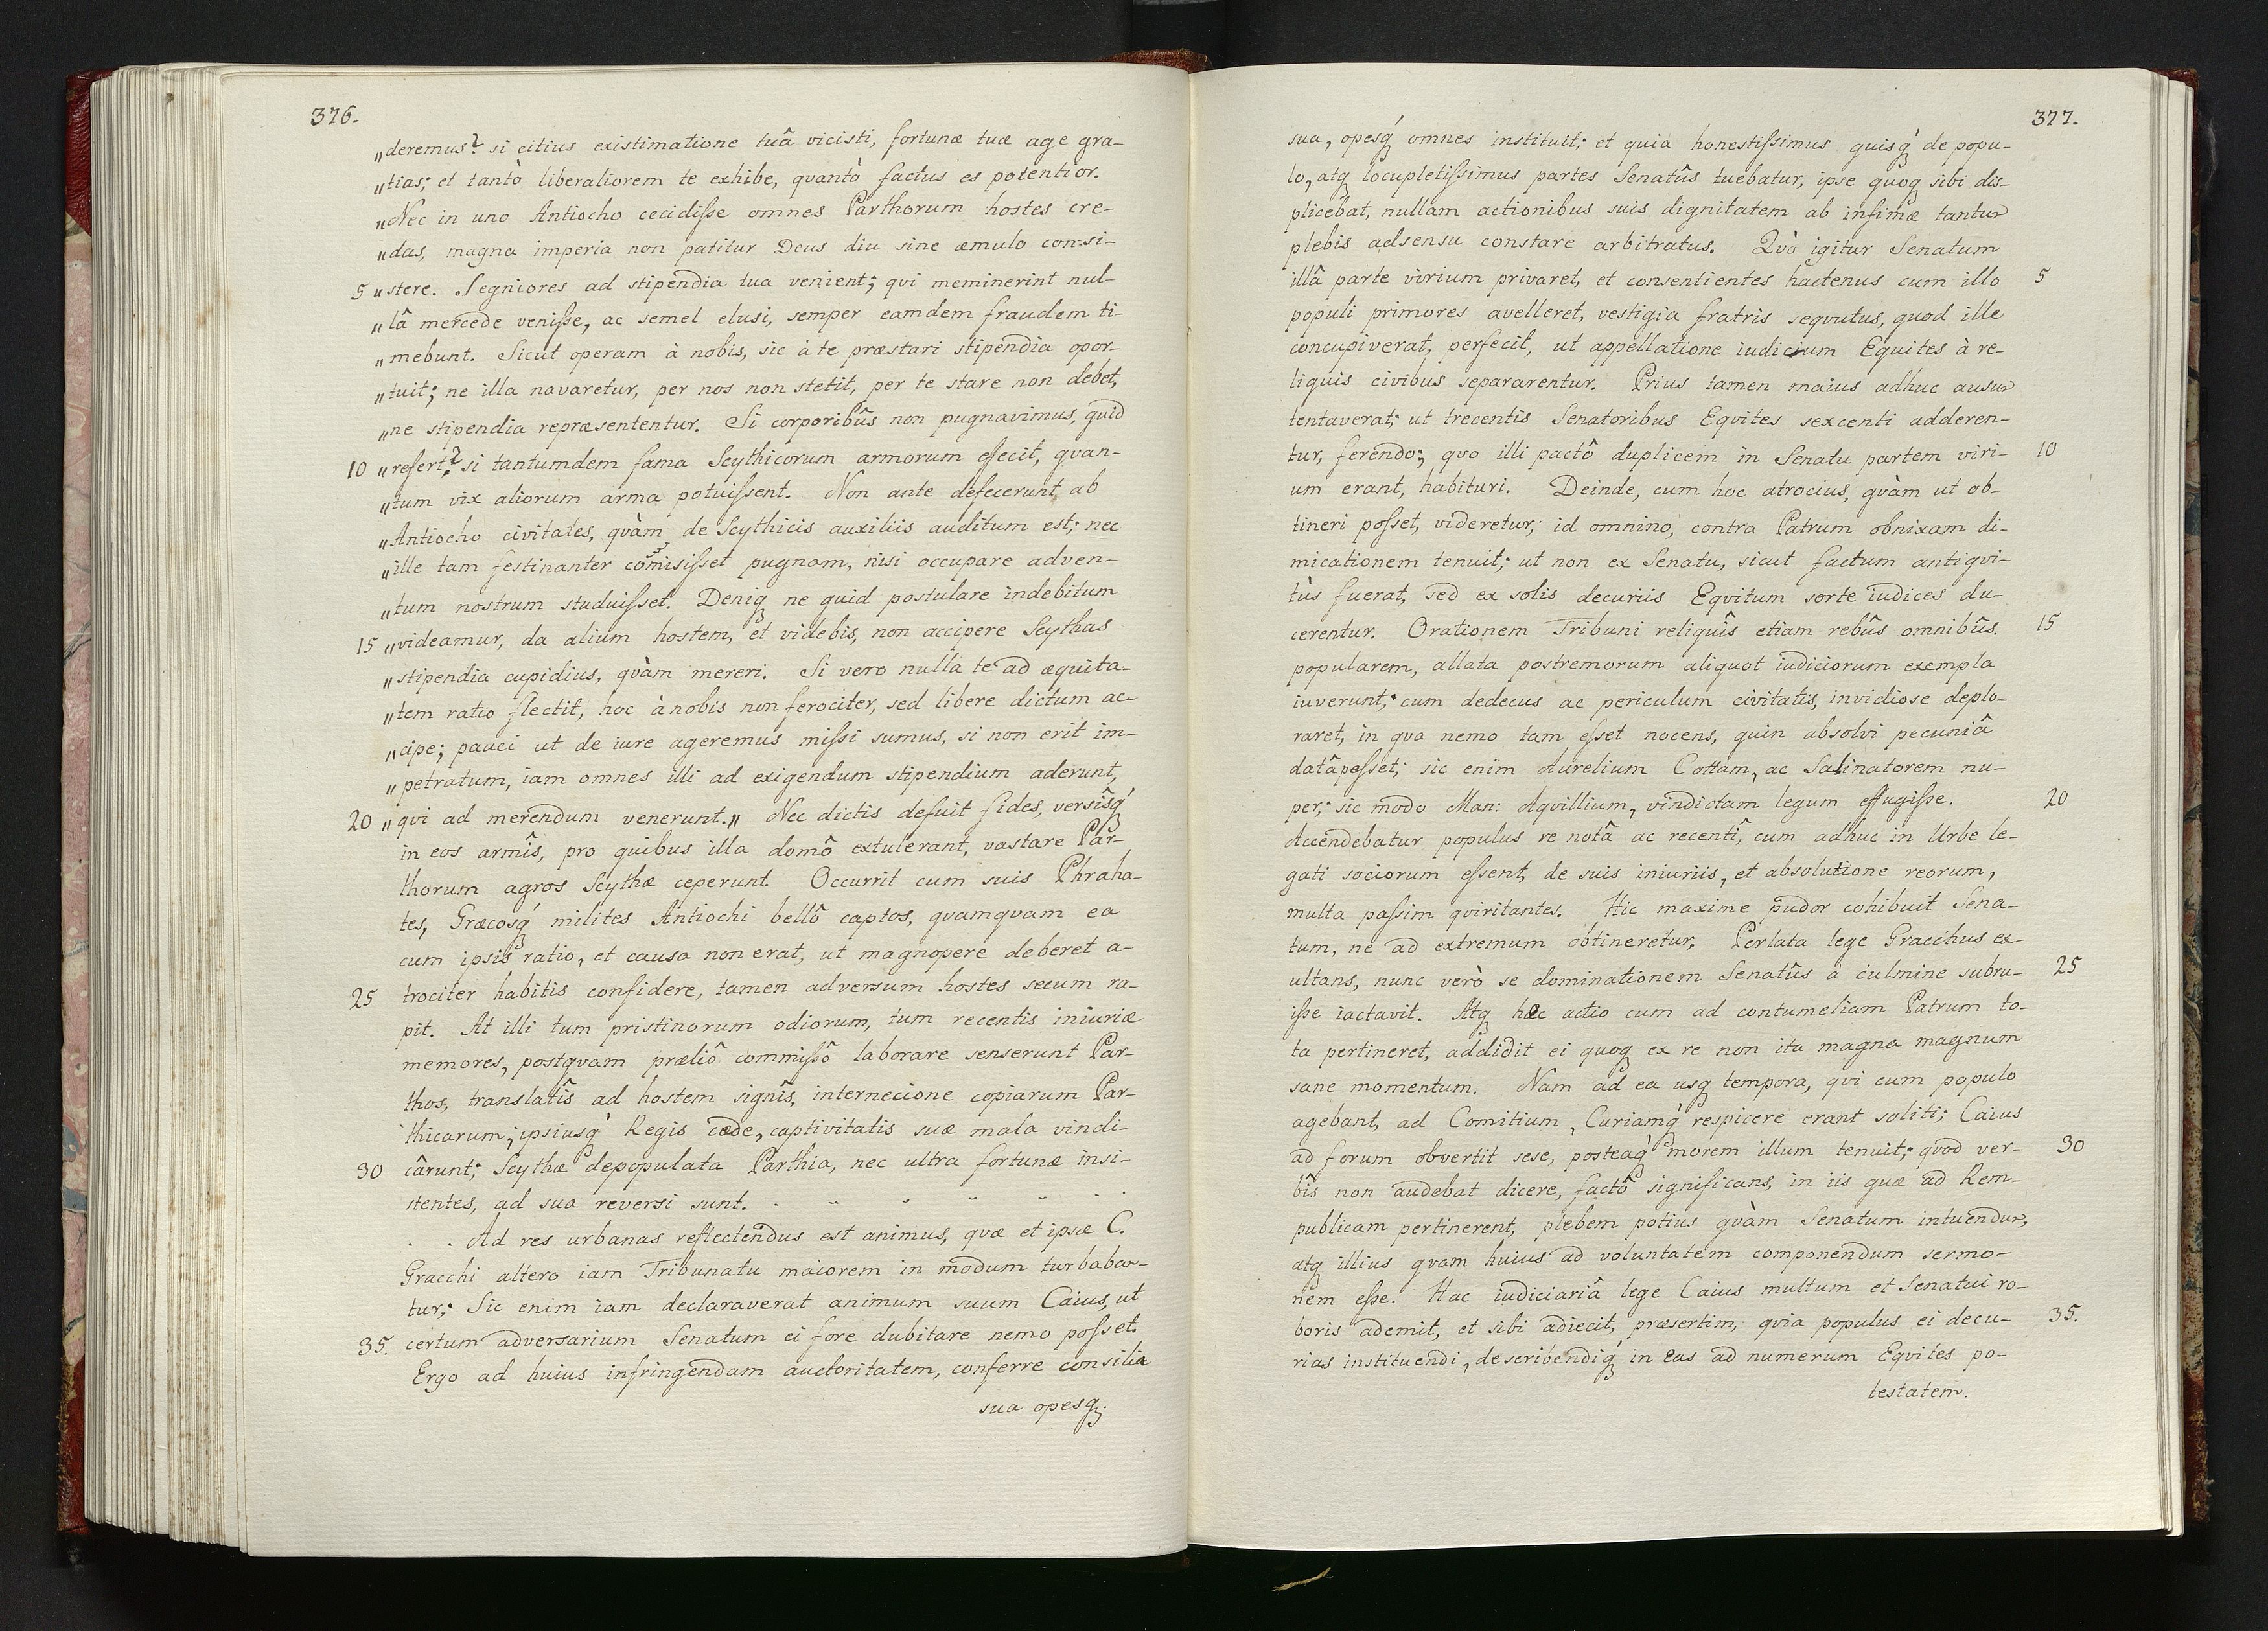 376.
„deremus? si citius existimatione tuâ vicisti, fortunæ tuæ age gra-
„tias; et tantò liberaliorem te exhibe, quantò factus es potentior.
„Nec in uno Antiocho cecidisse omnes Parthorum hostes cre-
„das, magna imperia non patitur Deus diu sine æmulo consi-
5 „stere. Segniores ad stipendia tua venient; qui meminerint nul-
„lâ mercede venisse, ac semel elusi, semper eamdem fraudem ti-
„mebunt. Sicut operam à nobis, sic à te præstari stipendia opor-
„tuit; ne illa navaretur, per nos non stetit, per te stare non debet,
„ne stipendia repræsententur. Si corporibûs non pugnavimus, quid
10 „refert? si tantumdem fama Scythicorum armorum efecit, qvan-
„tum vix aliorum arma potuissent. Non ante defecerunt ab
„Antiocho civitates, qvàm de Scythicis auxiliis auditum est; nec
„ille tam festinanter com̃isisset pugnam, nisi occupare adven-
„tum nostrum studuisset. Deniq; ne quid postulare indebitum
15 „videamur, da alium hostem, et videbis, non accipere Scythas
„stipendia cupidius, qvàm mereri. Si vero nulla te ad æquita-
„tem ratio flectit, hoc à nobis non ferociter, sed libere dictum ac-
„cipe; pauci ut de iure ageremus missi sumus, si non erit im-
„petratum, iam omnes illi ad exigendum stipendium aderunt,
20 „qvi ad merendum venerunt.„ Nec dictis defuit fides, versîsq́;
in eos armîs, pro quibus illa domô extulerant, vastare Par-
thorum agros Scythæ ceperunt. Occurrit cum suis Phraha-
tes, Græcosq́; milites Antiochi bellô captos, qvamqvam ea
cum ipsis ratio, et causa non erat, ut magnopere deberet a-
25 trociter habitis confidere, tamen adversum hostes secum ra-
pit. At illi tum pristinorum odiorum, tum recentis iniuriæ
memores, postqvam præliô commissô laborare senserunt Par-
thos, translatîs ad hostem signîs, internecione copiarum Par-
thicarum; ipsiusq́; Regis cæde, captivitatis suæ mala vindi-
30 cârunt; Scythæ depopulata Parthia, nec ultra fortunæ insi-
stentes, ad sua reversi sunt. - - - - - - -
. . Ad res urbanas reflectendus est animus, qvæ et ipsæ C.
Gracchi altero iam Tribunatu maiorem in modum turbaban-
tur; Sic enim iam declaraverat animum suum Caius, ut
35. certum adversarium Senatum ei fore dubitare nemo posset.
Ergo ad huius infringendam auctoritatem, conferre consilia
sua opesq;
377.
sua, opesq́; omnes instituit; et quia honestissimus quisq́; de popu-
lo, atq; locupletissimus partes Senatûs tuebatur, ipse quoq; sibi dis-
plicebat, nullam actionibus suis dignitatem ab infimæ tantum
plebis adsensu constare arbitratus. Qvò igitur Senatum
illâ parte virium privaret, et consentientes hactenus cum illo 5
populi primores avelleret, vestigia fratris seqvutus, quod ille
concupiverat, perfecit, ut appellatione iudicium Equites à re-
liquis civibus separarentur. Prius tamen maius adhuc ausum
tentaverat; ut trecentis Senatoribus Eqvites sexcenti adderen-
tur, ferendo; qvo illi pactô duplicem in Senatu partem viri- 10
um erant, habituri. Deinde, cum hoc atrocius, qvàm ut ob-
tineri posset, videretur; id omnino, contra Patrum obnixam di-
micationem tenuit; ut non ex Senatu, sicut factum antiqvi-
tùs fuerat, sed ex solis decuriis Eqvitum sorte iudices du-
cerentur. Orationem Tribuni reliquîs etiam rebûs omnibûs. 15
popularem, allata postremorum aliquot iudiciorum exempla
iuverunt; cum dedecus ac periculum civitatis, invidiose deplo-
raret, in qva nemo tam esset nocens, quin absolvi pecuniâ
datâ posset; sic enim Aurelium Cottam, ac Salinatorem nu-
per; sic modo Man: Aqvillium, vindictam legum effugisse. 20
Accendebatur populus re notâ ac recentî, cum adhuc in Urbe le-
gati sociorum essent, de suis iniuriis, et absolutione reorum,
multa passim qviritantes. Hic maxime pudor cohibuit Sena-
tum, ne ad extremum obtineretur. Perlata lege Gracchus ex-
ultans, nunc verò se dominationem Senatûs à culmine subru- 25
isse iactavit. Atq; hæc actio cum ad contumeliam Patrum to-
ta pertineret, addidit ei quoq; ex re non ita magna magnum
sane momentum. Nam ad ea usq; tempora, qvi cum populo
agebant, ad Comitium, Curiamq́; respicere erant soliti; Caius
ad forum obvertit sese, posteaq́; morem illum tenuit; qvod ver- 30
bîs non audebat dicere, factô significans, in iis quæ ad Rem-
publicam pertinerent, plebem potius qvàm Senatum intuendum,
atq; illius qvam huius ad voluntatem componendum sermo-
nem esse. Hac iudiciariâ lege Caius multum et Senatui ro-
boris ademit, et sibi adiecit, præsertim, qvia populus ei decu- 35.
rias instituendi, describendiq́; in eas ad numerum Eqvites po-
testatem.